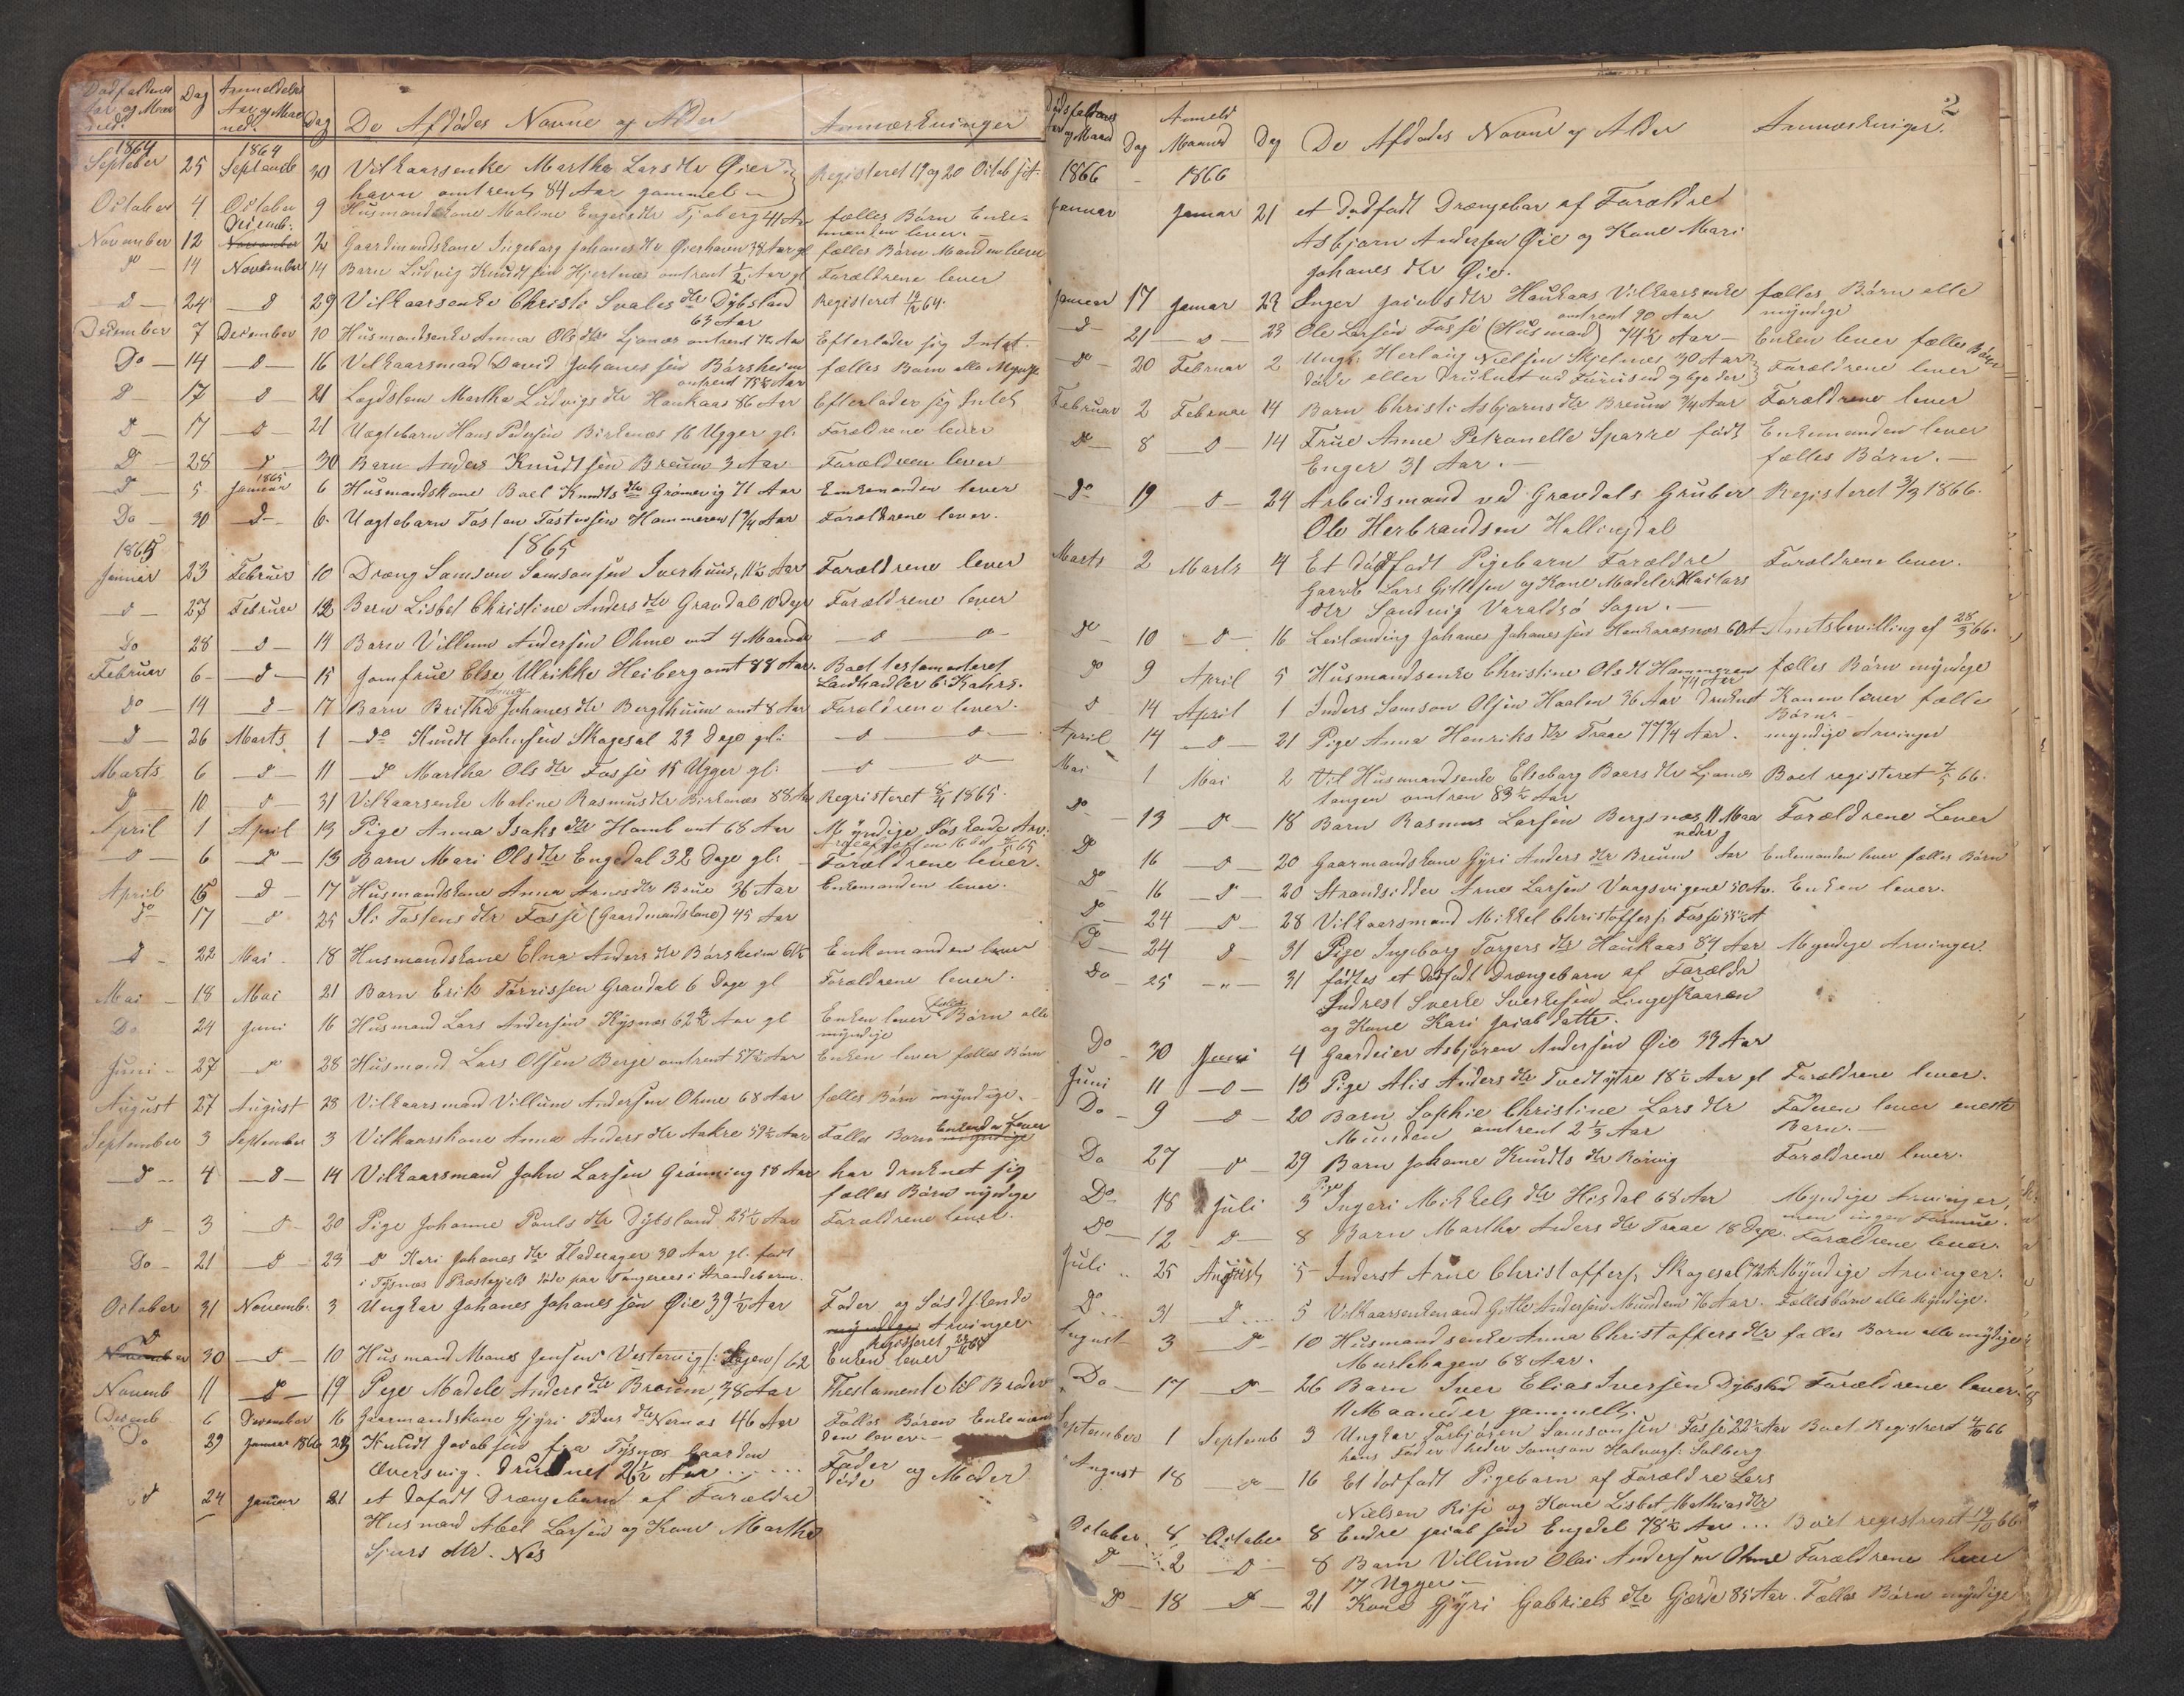 Dødsfaldenes Aar og Maaned. | Dag | Anmeldelse Aar og Maaned. | Dag | De Afdødes Navne og Alder | Anmærkninger
1864 1864
September 25 Septemb 30 Vilkaarsenke Martha Lars dtr Øier Registeret 19 og 20 Octob
havn omtrent 84 Aar gammel
October 4 October 9 Husmandskone Maline Engels dtr Tjoberg 41 Aar fælles Børn Enke-
manden lever.
November 12 Decemb: 2 Gaardmandskone Ingeborg Johanes dtr Øierhavn 38 Aar gl fælles Børn Manden lever
d 14 November 14 Barn Ludvig Knudtsen Hjertnæs omtrent 1/2 Aar gl Forældrene lever
d 24 d 29 Vilkaarsenke Christi Svales dtr Dybsland Registeret 64.
63 Aar
December 7 December 10 Husmandsenke Anna Ols dtr Ljonæs omtrent 72 Aar Efterlader sig Intet.
Do 14 d 16 Vilkaarsmand David Johanessen Børsheim fælles Børn alle Myndige
omtrent 75 1/2 Aar
D 17 d 21 Lægdslem Martha Ludvigs dtr Haukaas 86 Aar Efterlader sig Intet
D 17 d 21 Uægtebarn Hans Pedersen Birkenæs 16 Ugger gl: Forældrene lever
D 28 d 30 Barn Anders Knudtsen Breum 3 Aar Forældreen lever
D 5 Januar 1865 6 Husmandskone Boel Knudts dtr Grømevig 71 Aar Enkemanden lever
Do 30 d 6 Uægtebarn Tosten Tostensen Hammeren 1 3/4 Aar Forældrene lever.
1865 1865
Januar 23 Februer 10 Dræng Samson Samsonsen Iverhuus, 11 1/2 Aar Forældrene lever
d 27 Februar 12 Barn Lisbet Christine Anders dtr Gravdal 10 Dage Forældrene lever
Do 28 d 14 Barn Villum Andersen Ohme omt 4 Maaneder d d
Februar 6 d 15 Jomfrue Else Ulrikke Heiberg omt 88 Aar. Boet testamenteret
Landhandler C. Kahrs.
do 14 d 17 Barn Britha Anna Johanes dtr Bergthuun omt 8 Aar Forældrene lever.
d 26 Marts 1 do Knudt Johnsen Skogesal 23 Dage gl: d d
Marts 6 d 11 d Martha Ols dtr Fosse 15 Ugger gl: d d
D 10 d 31 Vilkaarsenke Maline Rasmus dtr Birkenæs 88 Aar Regristeret 1865.
April 1 April 13 Pige Anna Isaks dtr Homb omt 68 Aar Myndige Søskende Arv:
d 6 d 13 Barn Mari Ols dtr Engedal 32 Dage gl: Forældrene lever.
April 15 d 17 Husmandskone Anna Arnes dtr Brue 36 Aar Enkemanden lever.
do 17 d 25 Sli Tostens dtr Fosse (Gaardmandskone) 45 Aar
d 22 Mai 18 Husmandskone Elna Anders dtr Børsheim 61 1/2 Enkemanden lever
Mai 18 Mai 21 Barn Erik Torrissen Gravdal 6 Dage gl Forældrene lever.
Do 24 Juni 16 Husmand Lars Andersen Kysnæs 62 Aar gl Enken lever fælles Børn alle
myndige
Juni 27 d 28 Husmand Lars Olsen Berge omtrent 57 1/2 Aar Enken lever fælles Børn
August 27 August 28 Vilkaarsmand Villum Andersen Ohme 68 Aar fælles Børn myndige.
September 3 September 3 Vilkaarskone Anna Anders dtr Aakre 59 1/2 Aar Fælles Børn Enkend lever
d 4 d 14 Vilkaarsmand John Larsen Grønning 58 Aar har druknet sig
fælles Børn myndige
d 3 d 20 Pige Johanne Pouls dtr Dybsland 25 1/2 Aar Forældrene lever.
Do 21 d 23 d Kari Johanes dtr Fladerager 30 Aar gl. født
i Tysnæs Præstegjeld døde paa Tangeraas i Strandebarm.
October 31 Novemb. 3 Ungkar Johanes Johanessen Øie 39 1/2 Aar Fader og Sødskende
Arvinger
Registeret
d 30 d 10 Husmand Mons Jensen Vestervig /: Lægen / 62 Enken lever
Novemb 11 d 19 Pige Madele Anders dtr Breum, 38 Aar Thestamente til Broder
Decemb 6 December 16 Gaarmandskone Gjyri Peders dtr Nernæs 46 Aar Fælles Børen Enkeman
den lever.
Do 29 Januar 1866 23 Knudt Jacobsen fra Tysnæs Gaarden Fader og Moder
Oversvig. druknet 26 1/2 Aar døde
d 24 Januar 21 et døfødt Drængebarn af Forældre
Husmand Abel Larsen og Kone Martha
Sjurs dtr. Nes

2
Dødsfaldenes Aar og Maaned | Dag | Anmeld Maaned | Dag | De Afdødes Navne og Alder | Anmærkninger.
1866 1866
Januar Januar 21 et dødfødt Drængebar af Forældre
Asbjørn Andersen Øie og Kone Mari
Johanes dtr Øie.
Januar 17 Januar 23 Inger Jacobs dtr Haukaas Vilkaarsenke fælles Børn alle
omtrent 90 Aar myndige
d 21 d 23 Ole Larsen Fosse (Husmand) 74 1/2 Aar Enken lever fælles Børn
d 20 Februar 2 Ungk: Herlaug Nielsen Skjelnes 30 Aar
døde eller druknet ved Forældrene lever
Februar 2 Februar 14 Barn Christi Asbjørns dtr Breum 3/4 Aar Forældrene lever
do 8 d 14 Frue Anne Petronelle Sparre født Enkemanden lever
Enger 31 Aar. fælles Børn.
do 19 d 24 Arbeidsmand ved Gravdals Gruber Registeret 3/3 1866.
Ole Herbrandsen Hallingdal
Marts 2 Marts 4 Et dødfødt Pigebarn Forældre Forældrene lever.
Gaardb Lars Gittlesen og Kone Madele Haktors
dtr Sandvig Varaldsø Sogn.
do 10 d 16 Leilænding Johanes Johanessen Haukaasnæs 60 A Amtsbevilling af 28/3 66.
do 9 April 5 Husmandsenke Christine Ols dt Hammeren fælles Børn myndige
71 Aar
d 14 April 1 Inders Samson Olsen Haalen 36 Aar druknet Konen lever fælle
Børn
April 14 d 21 Pige Anna Henriks dtr Traae 77 3/4 Aar. myndige Arvinger
Mai 1 Mai 2 Vil Husmandsenke Elseborg Baars dtr Ljonæs Boet registeret 7/5 66.
tangen omtren 83 1/2 Aar
do 13 d 18 Barn Rasmus Larsen Bergsnæs 11 Maa Forældrene Lever
neder g
D 16 d 20 Gaarmandskone Gyri Anders dtr Breum Aar Enkemanden lever fælles Børn
Do 16 d 20 Strandsidder Arne Larsen Vaagsvigene 50 Aar. Enken lever.
D 24 d 28 Vilkaarsmand Mikkel Christoffers: Fosse 55 1/2 A
D 24 d 31 Pige Ingeborg Torgers dtr Haukaas 84 Aar Myndige Arvinger.
Do 25 " 31 fødtes et dødfødt Drængebarn af Forældr
Indrest Sverke Sverkesen Lingeskaaren
og Kone Kari Jacobdattr.
Do 30 Juni 4 Gaardeier Asbjøren Andersen Øie 33 Aar
Juni 11 d 13 Pige Alis Anders dtr Tvedt ytre 18 1/2 Aar gl Forældrene lever.
Do 9 d 20 Barn Sophie Christine Lars dtr Faderen lever eneste
Mundem omtrent 2 1/3 Aar Barn.
Do 27 d 29 Barn Johanne Knudts dtr Rørvig Forældrene lever.
Do 18 Juli 3 Pige Ingeri Mikkels dtr Hisdal 68 Aar Myndige Arvinger,
men ingen Formue.
Do 12 d 8 Barn Martha Anders dtr Traae 18 Dage. Forældrene lever.
Juli 25 August 5 Inderst Arne Christoffers: Skogesal Myndige Arvinger.
Do 31 d 5 Vilkaarsenkemand Gitle Andersen Mundem 76 Aar. Fællesbørn alle Myndige.
August 3 d 10 Husmandsenke Anna Christoffers dtr fælles Børn alle mydige
Murhhagen 68 Aar.
Do 17 d 26 Barn Iver Elias Iversen Dybsland Forældrene lever.
11 Maaneder gammelt.
September 1 Septemb 3 Ungkar Torbjøren Samsonsen Fosse 22 1/2 Aar Boet Registrert 4/10 66
hans Fader heder Samson Halvors: Solberg
August 18 d 16 Et dødfødt Pigebarn af Forældre Lars
Nielsen Rise og Kone Lisbet Mathias dtr
October 8 October 8 Endre Jacobsen Engedal 78 1/2 Aar ... Boet registreret 66.
D 2 d 8 Barn Villum Olai Andersen Ohme Forældrene lever
17 Ugger
D 18 d 21 Kone Gjyri Gabriels dtr Gjerde 85 Aar. Fælles Børn myndige